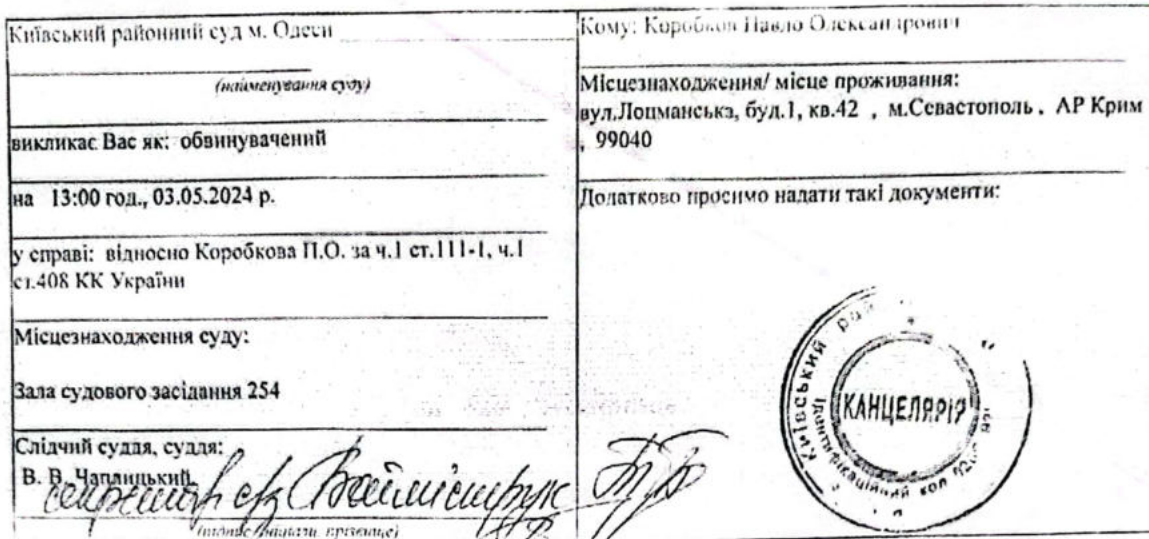 Київський районний суд м. Одеси
(найменування суду)
викликає Вас як: обвинувачений
на 13:00 год., 03.05.2024 р.
у справі: відносно Коробкова П.О. за ч.1 ст.111-1, ч.1
ст.408 КК України
Місцезнаходження суду:
Зала судового засідання 254
Слідчий суддя, суддя:
В. В. Чаплицький
секретар с/з
(підпис, ініціали, прізвище)
Кому: Коробков Павло Олександрович
Місцезнаходження/ місце проживання:
вул.Лоцманська, буд.1, кв.42 , м.Севастополь , АР Крим
, 99040
Додатково просимо надати такі документи:
Київський рай
КАНЦЕЛЯРІЯ
Ідентифікаційний код